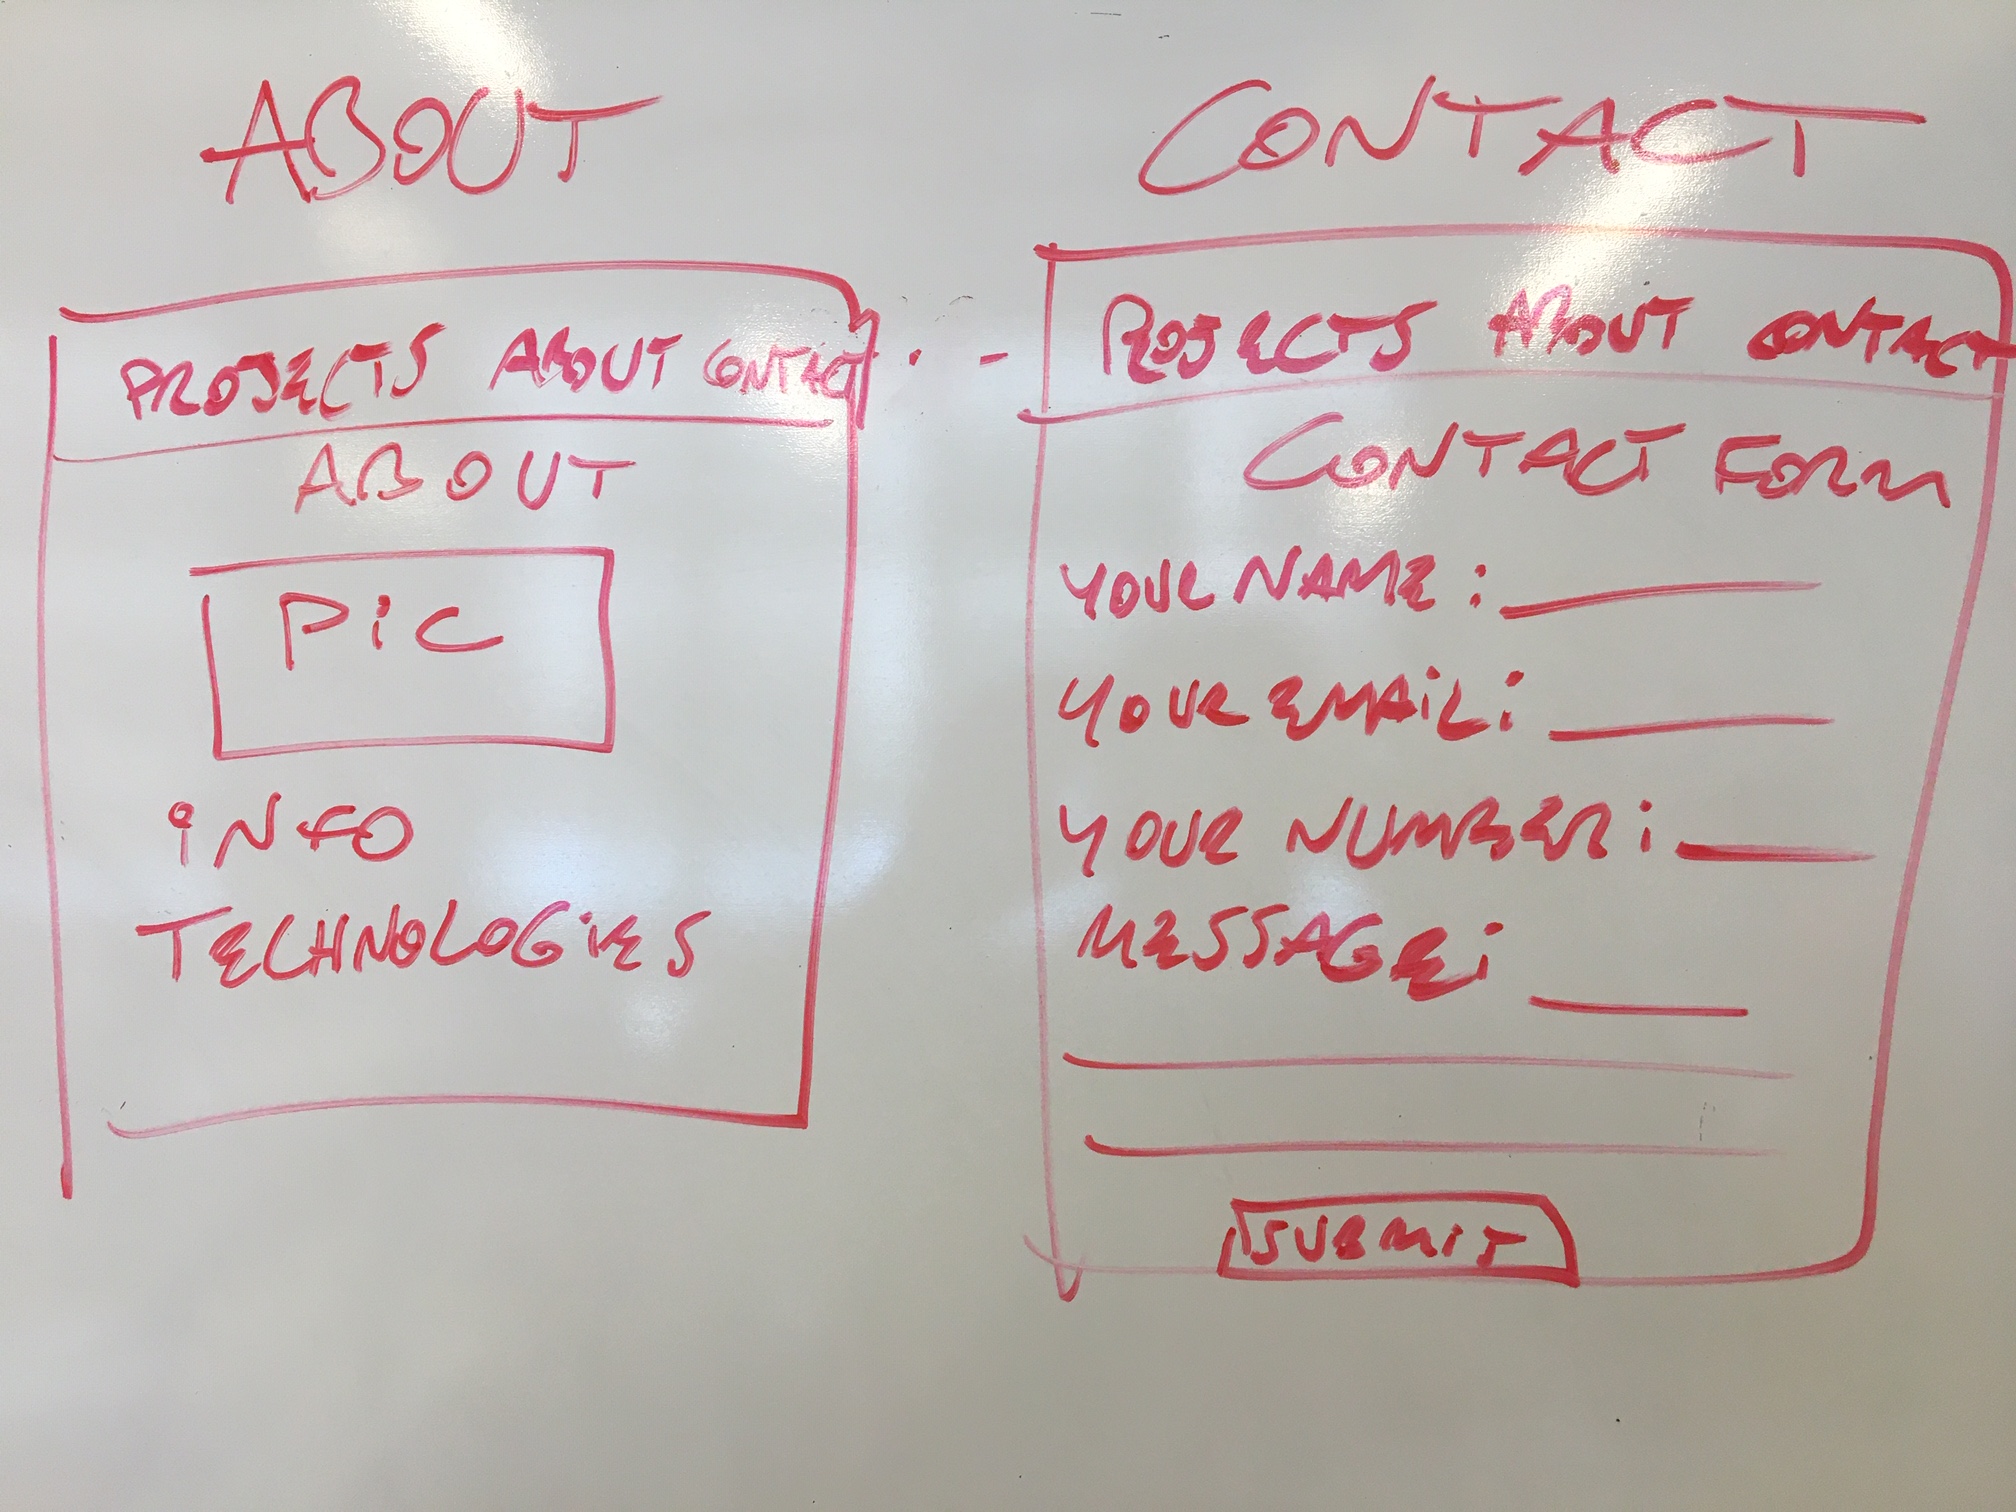 ABOUT
PROJECTS ABOUT CONTACT
ABOUT
PiC
iNFO
TECHNOLOGiES
CONTACT
PROJECTS ABOUT CONTACT
CONTACT FORM
YOUR NAME:
YOUR EMAiL:
YOUR NUMBER:
MESSAGE:
SUBMIT